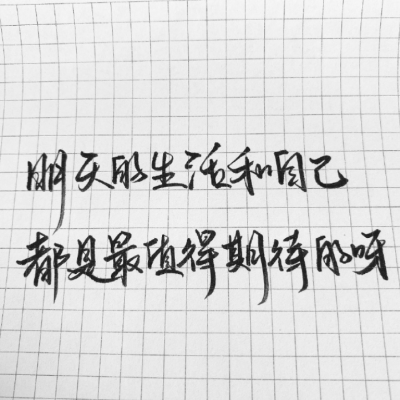 明天的生活和自己
都是最值得期待的呀